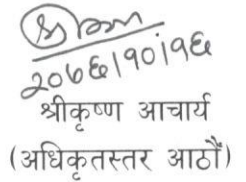 २०७६।१०।१६
श्रीकृष्ण आचार्य
(अधिकृतस्तर आठौं)